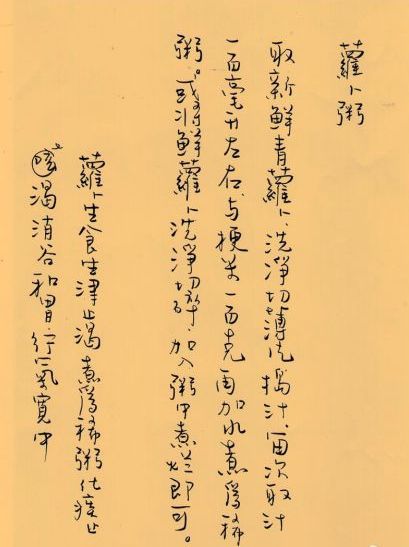 蘿卜粥
取新鮮青蘿卜、洗凈切薄片搗汁、每次取汁
一百毫升左右与粳米一百克再加水煮爲稀
粥。或将鮮蘿卜洗淨切碎、加入粥中煮烂即可。
蘿卜生食生津止渴煮爲稀粥化痰止
渴消谷和胃行氣寬中